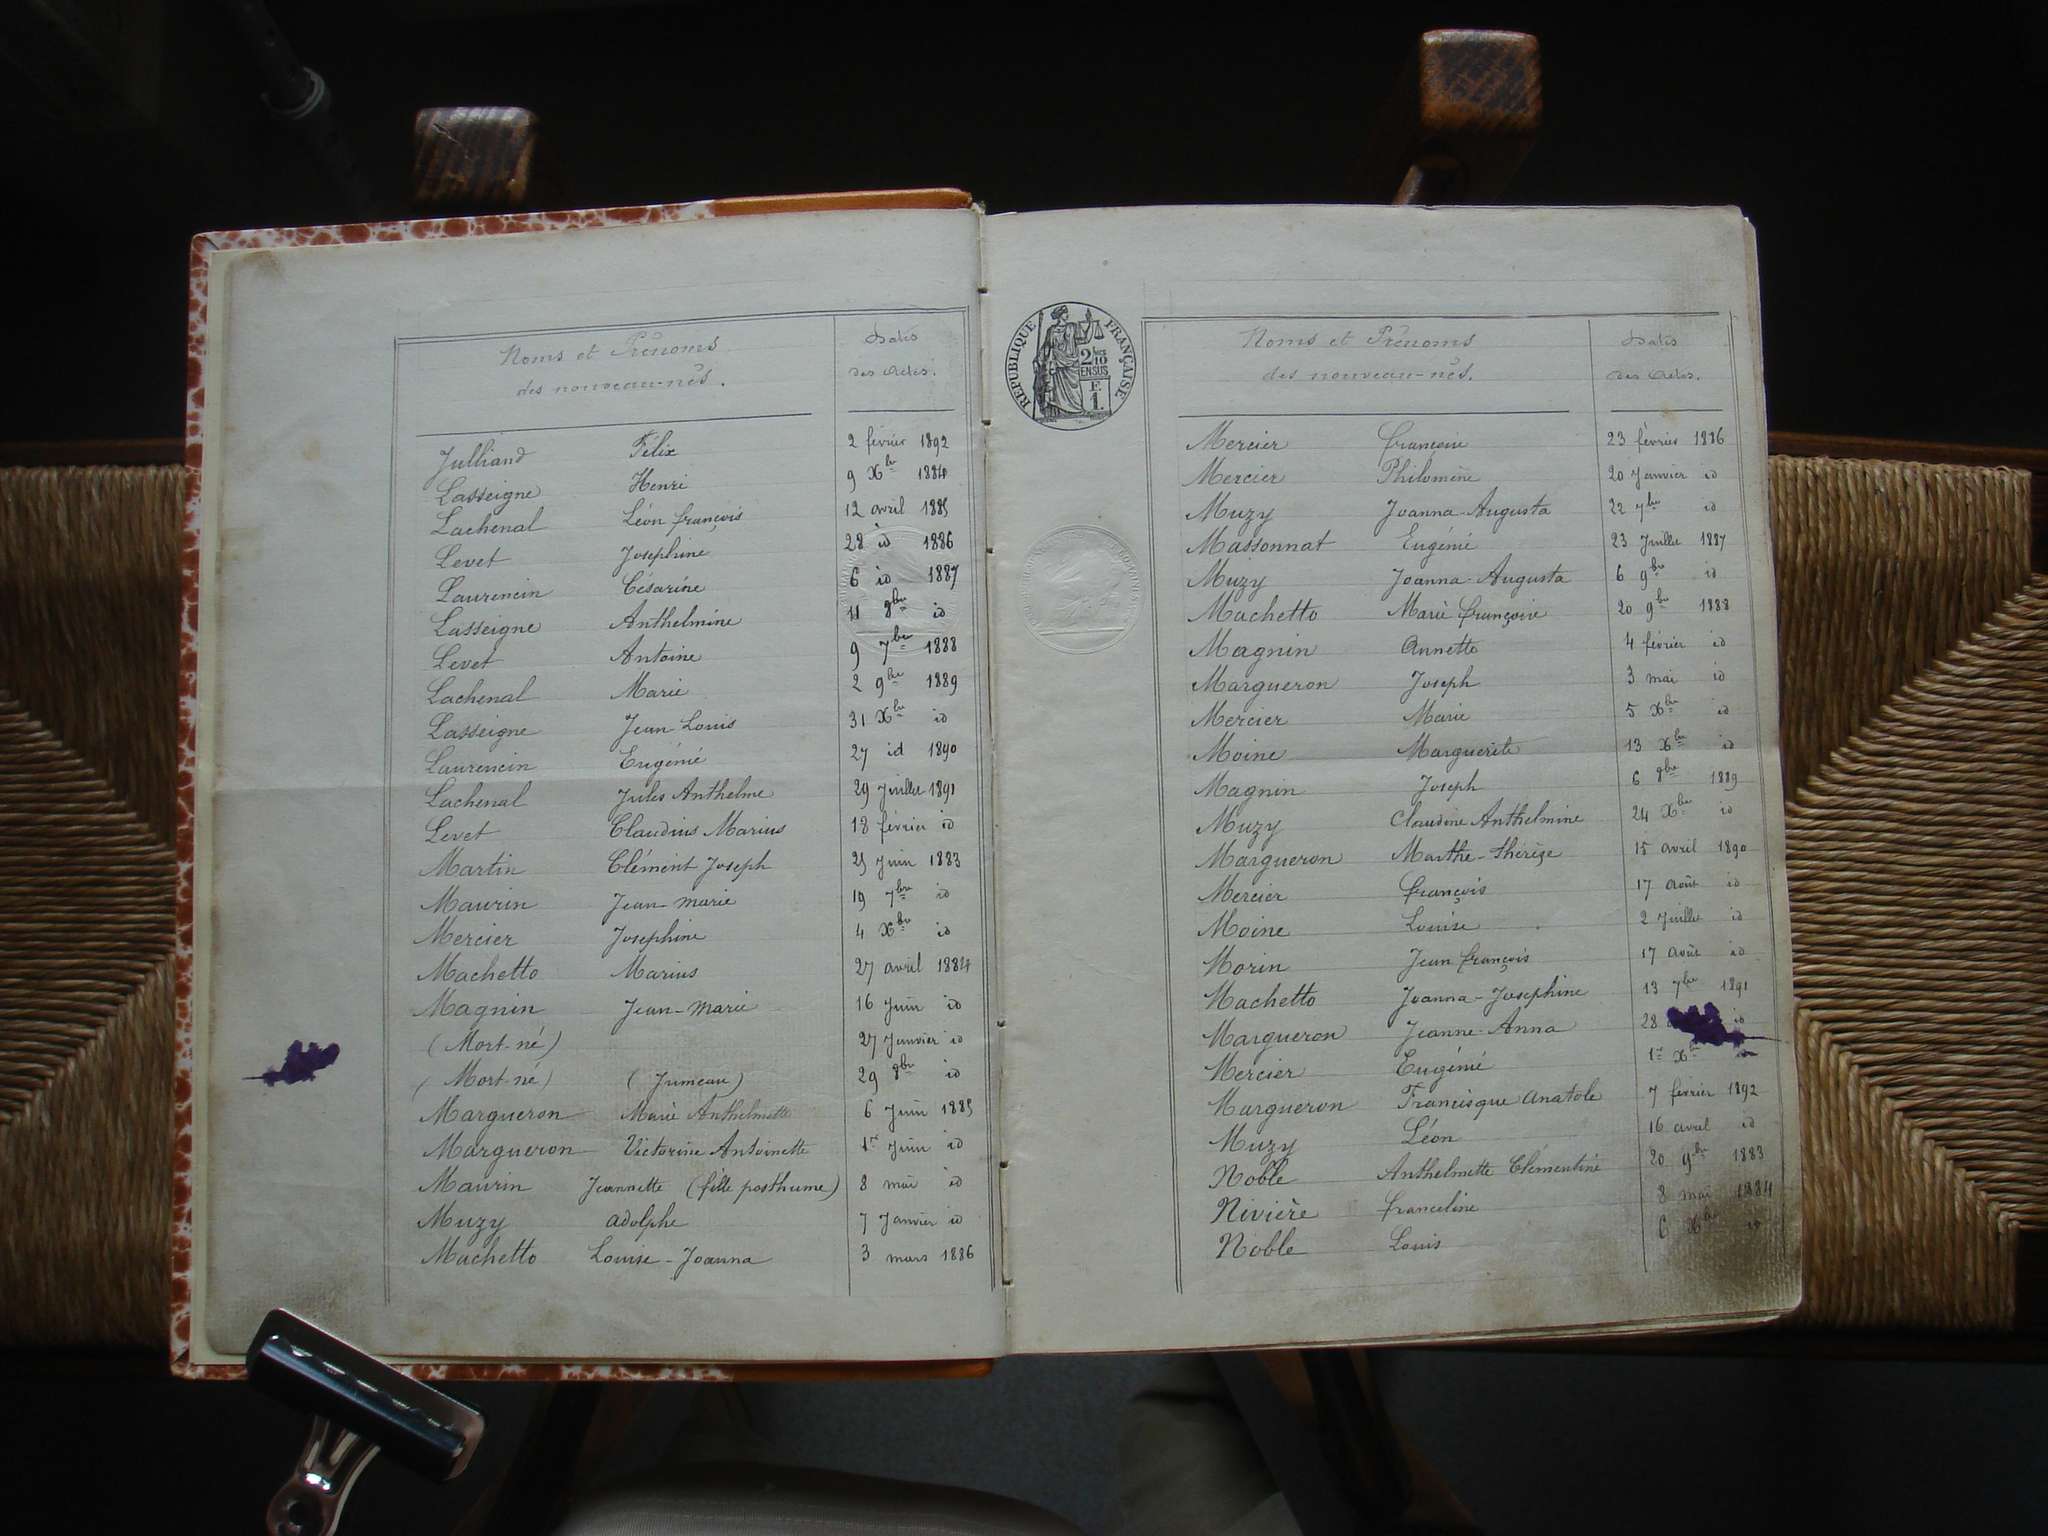 Noms et Prénoms
des nouveau-nés.
Dates
des Actes.
Julliand Félix 2 février 1892
Lasseigne Henri 9 Xbre 1884
Lachenal Léon françois 12 avril 1885
Levet Josephine 28 id 1886
Laurencin Césarine 6 id 1887
Lasseigne Anthelmine 11 8bre id
Levet Antoine 9 7bre 1888
Lachenal Marie 2 9bre 1889
Lasseigne Jean Louis 31 Xbre id
Laurencin Eugénie 27 id 1890
Lachenal Jules Anthelme 29 Juillet 1891
Levet Claudius Marius 18 février id
Martin Clément Joseph 25 Juin 1883
Maurin Jean-marie 19 7bre id
Mercier Josephine 4 Xbre id
Machetto Marius 27 avril 1884
Magnin Jean-marie 16 Juin id
(Mort-né) 27 Janvier id
(Mort-né) (Jumeau) 29 8bre id
Margueron Marie Anthelmette 6 Juin 1885
Margueron Victorine Antoinette 1er Juin id
Maurin Jeannette (fille posthume) 8 mai id
Muzy adolphe 7 Janvier id
Machetto Louise-Joanna 3 mars 1886
RÉPUBLIQUE FRANÇAISE
2/10
EN SUS
F.
1.
Noms et Prénoms
des nouveau-nés.
Dates
des Actes.
Mercier françoise 23 février 1886
Mercier Philomène 20 Janvier id
Muzy Joanna-Augusta 22 7bre id
Massonnat Eugénie 23 Juillet 1887
Muzy Joanna-Augusta 6 9bre id
Machetto Marie françoise 20 9bre 1888
Magnin Annette 4 février id
Margueron Joseph 3 mai id
Mercier Marie 5 Xbre id
Moine Marguerite 13 Xbre id
Magnin Joseph 6 8bre 1889
Muzy Claudine Anthelmine 24 Xbre id
Margueron Marthe-thérèse 15 avril 1890
Mercier françois 17 août id
Moine Louise 2 Juillet id
Morin Jean françois 17 août id
Machetto Joanna-Josephine 13 7bre 1891
Margueron Jeanne-Anna 28 id
Mercier Eugénie 1er Xbre
Margueron Francisque anatole 7 février 1892
Muzy Léon 16 avril id
Noble Anthelmette Clémentine 20 9bre 1883
Nivière franceline 8 mai 1884
Noble Louis 6 Xbre id